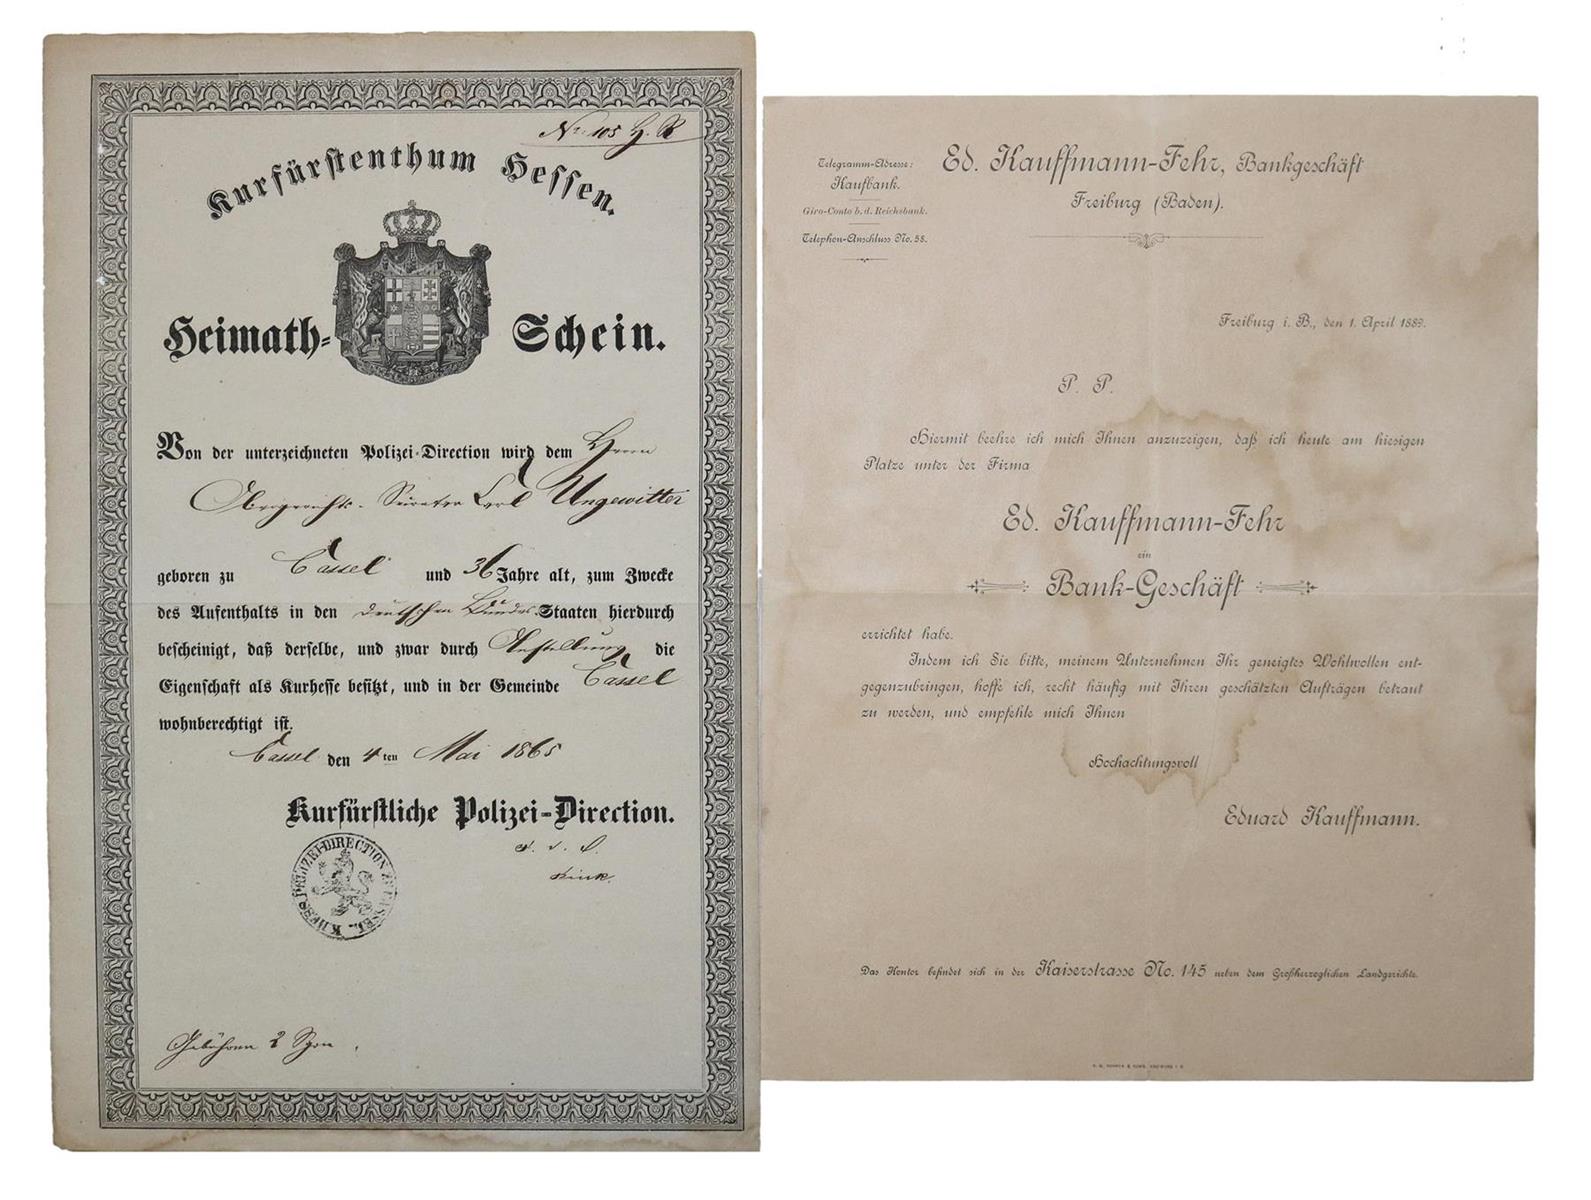 No 105 H. R.
Kurfürstenthum Hessen.
Heimath-Schein.
Von der unterzeichneten Polizei-Direction wird dem Herrn
Obergerichts- Carl Ungewitter
geboren zu Cassel und 36 Jahre alt, zum Zwecke
des Aufenthalts in den deutschen Bundes-Staaten hierdurch
bescheinigt, daß derselbe, und zwar durch Anstellung die
Eigenschaft als Kurhesse besitzt, und in der Gemeinde Cassel
wohnberechtigt ist.
Cassel den 4ten Mai 1865
Kurfürstliche Polizei-Direction.
POLIZEI-DIRECTION
Gebühren 2 Sgrn.
Telegramm-Adresse:
Kaufbank.
Giro-Conto b. d. Reichsbank.
Telephon-Anschluss No. 58.
Ed. Kauffmann-Fehr, Bankgeschäft
Freiburg (Baden).
Freiburg i. B., den 1. April 1889.
P. P.
Hiermit beehre ich mich Ihnen anzuzeigen, daß ich heute am hiesigen
Platze unter der Firma
Ed. Kauffmann-Fehr
ein
Bank-Geschäft
errichtet habe.
Indem ich Sie bitte, meinem Unternehmen Ihr geneigtes Wohlwollen ent-
gegenzubringen, hoffe ich, recht häufig mit Ihren geschätzten Aufträgen betraut
zu werden, und empfehle mich Ihnen
Hochachtungsvoll
Eduard Kauffmann.
Das Kontor befindet sich in der Kaiserstrasse No. 145 neben dem Großherzoglichen Landgerichte.